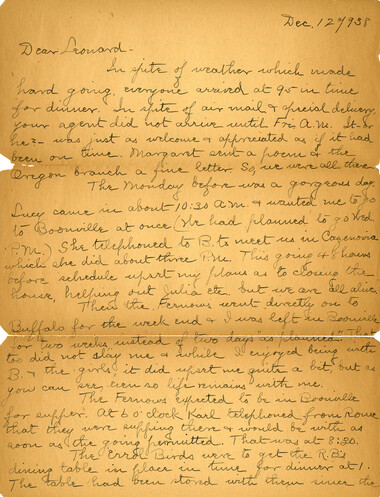 Dec. 12 1938
Dear Leonard -
In spite of weather which made
hard going, everyone arrived at 95 in time
for dinner. In spite of air mail & special delivery
your agent did not arrive until Fri. A.M. It - or
he? - was just as welcome & appreciated as if it had
been on time. Margaret sent a poem & the
Oregon branch a fine letter. So we were all there.
The Monday before was a gorgeous day.
Lucy came in about 10:30 A.M. & wanted me to go
to Boonville at once (We had planned to go Wed.
P.M.) She telephoned to B. to meet us in Cazenovia
which she did about three P.M. This going 48 hours
before schedule upset my plans as to closing the
house, helping out Julia etc. but we are all alive.
Then the Fernows went directly on to
Buffalo for the week end & I was left in Boonville
for two weeks instead of two days "as planned." That
too did not slay me & while I enjoyed being with
B. & the girls it did upset me quite a bit, but as
you can see, even so life remains with me.
The Fernows expected to be in Boonville
for supper. At 6 o'clock Karl telephoned from Rome
that they were supping there & would be with us as
soon as the going permitted. That was at 8:30.
The Errol Birds were to get the R.B's
dining table in place in time for dinner at 1.
The table had been stored with them since the